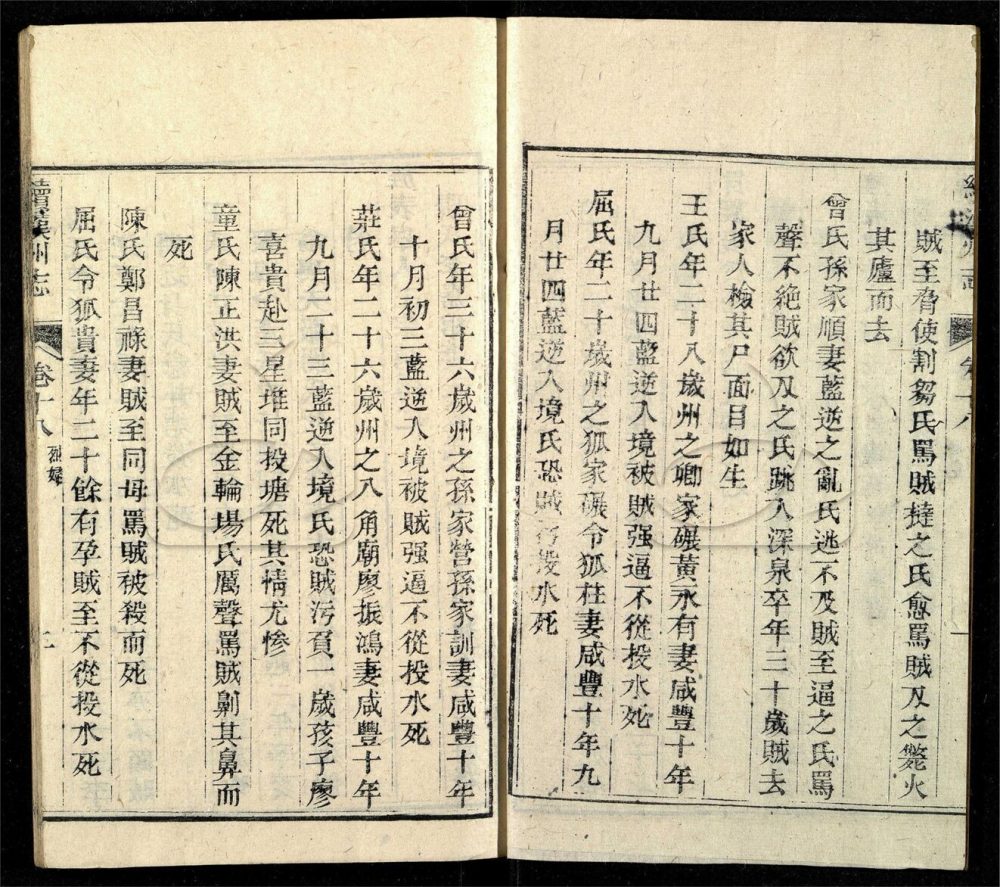 賊至脅使割芻氏罵賊撻之氏愈罵賊刄之斃火
其廬而去
曾氏孫家順妻藍逆之亂氏逃不及賊至逼之氏罵
聲不絕賊欲刄之氏跳入深泉卒年三十歲賊去
家人檢其尸面目如生
王氏年二十八歲州之卿家碾黃永有妻咸豐十年
九月廿四藍逆入境被賊强逼不從投水死
屈氏年二十歲州之狐家碾令狐柱妻咸豐十年九
月廿四藍逆入境氏恐賊污投水死
曾氏年三十六歲州之孫家營孫家訓妻咸豐十年
十月初三藍逆入境被賊强逼不從投水死
莊氏年二十六歲州之八角廟廖振鴻妻咸豐十年
九月二十三藍逆入境氏恐賊污負一歲孩子廖
喜貴赴三星堆同投塘死其情尤慘
童氏陳正洪妻賊至金輪場氏厲聲罵賊劓其鼻而
死
陳氏鄭昌祿妻賊至同母罵賊被殺而死
屈氏令狐貴妻年二十餘有孕賊至不從投水死
續漢州志
卷十八
烈婦